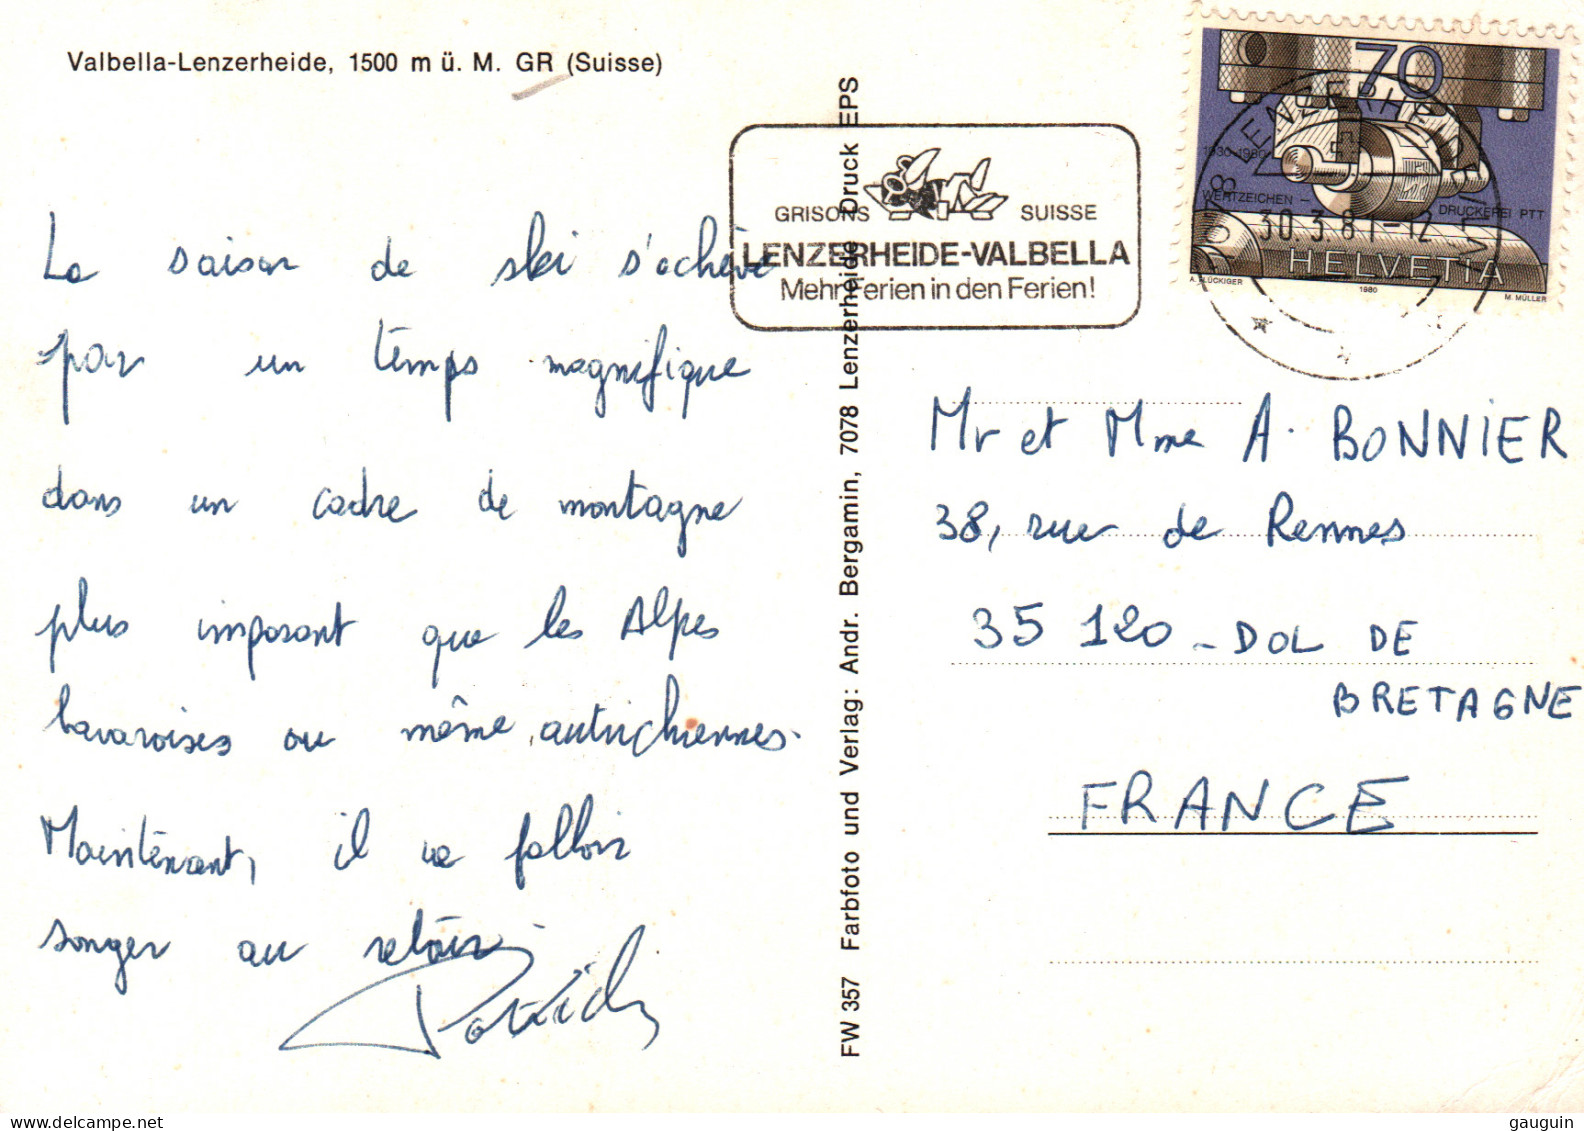 Valbella-Lenzerheide, 1500 m ü. M. GR (Suisse)
La saison de ski s'achève
par un temps magnifique
dans un cadre de montagne
plus imposant que les Alpes
bavaroises ou même autrichiennes.
Maintenant, il va falloir
songer au retour.
Patrick
FW 357 Farbfoto und Verlag: Andr. Bergamin, 7078 Lenzerheide Druck EPS
GRISONS SUISSE
LENZERHEIDE-VALBELLA
Mehr Ferien in den Ferien!
70
1930-1980
WERTZEICHEN -
DRUCKEREI PTT
HELVETIA
A. FLÜCKIGER 1980 M. MÜLLER
7078 LENZERHEIDE/LAI
30.3.81-12
Mr et Mme A. BONNIER
38, rue de Rennes
35 120 - DOL DE
BRETAGNE
FRANCE
gauguin